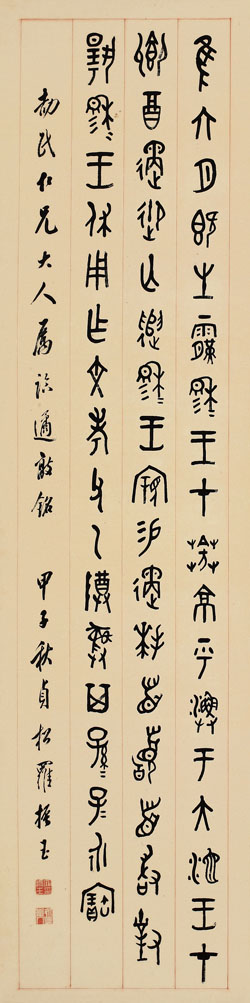 隹六月既生霸穆王才葊京乎漁于大池王才
鄉酉遹御亡遣穆王寴易遹拜首䭫首敢對
揚穆王休用乍文考父乙尊彝其孫子永寶
民仁兄大人屬臨遹敦銘 甲子秋貞松羅振玉